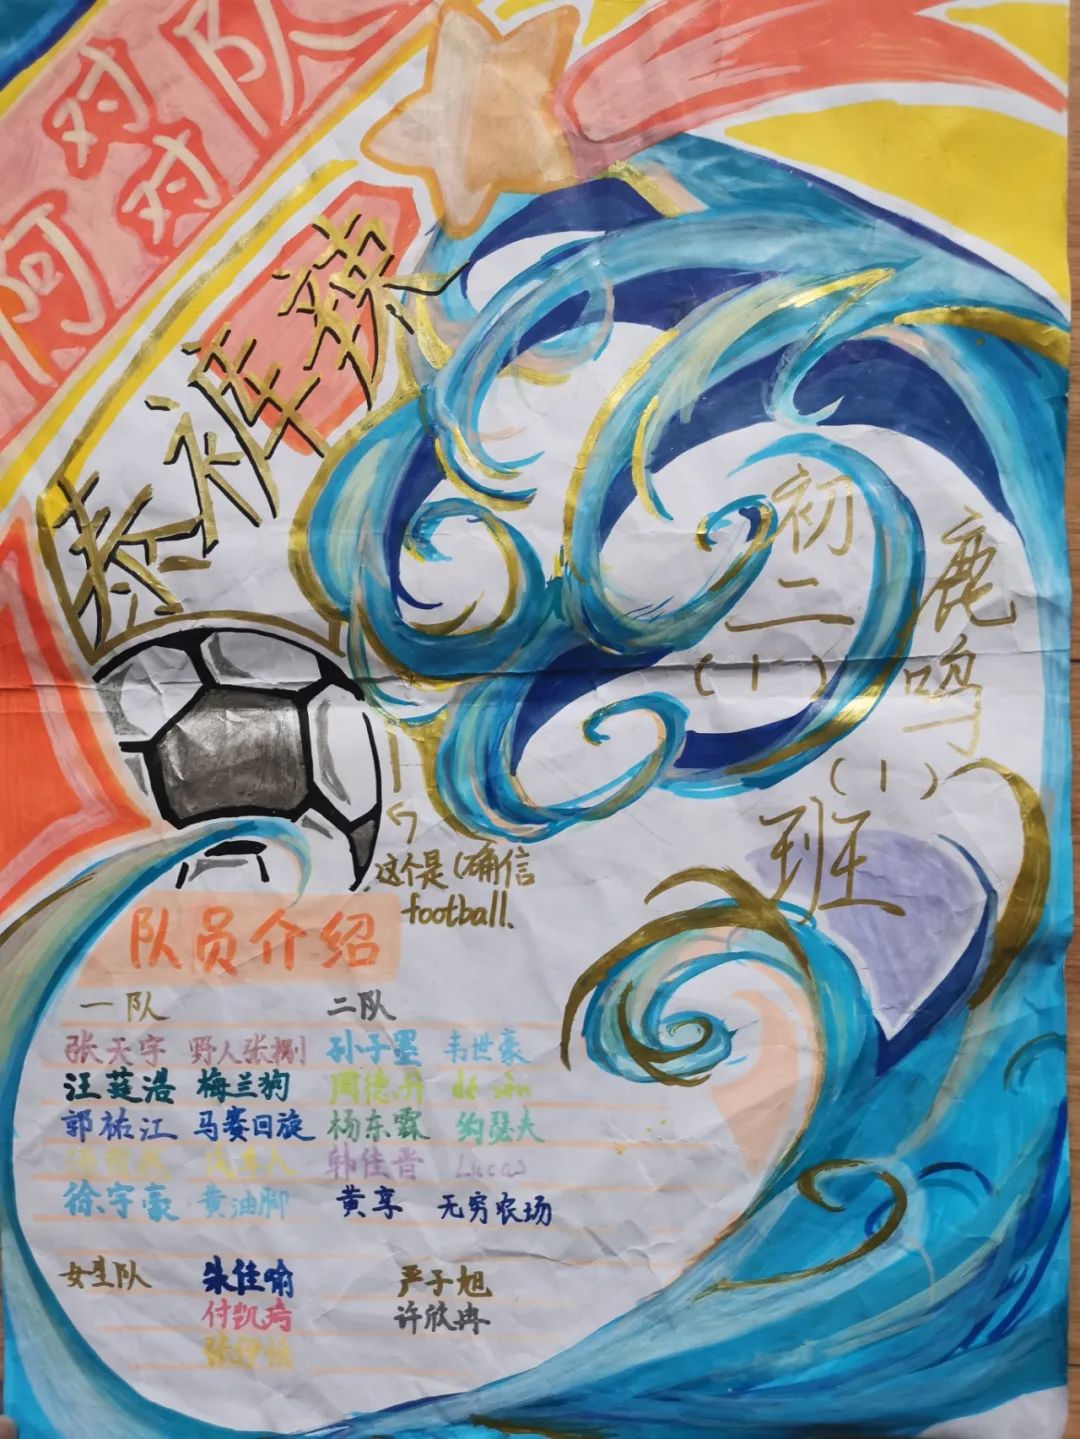 阿对对队
秦裤辣
初二
(1)
鹿鸣
(1)
班
这个是(确信
football.
队员介绍
一队 二队
张天宇 野人张捌 孙子墨 韦世豪
汪莛浩 梅兰狗 周德升 dé sēn
郭祐江 马赛回旋 杨东霖 约瑟夫
韩佳晋 Lucas
徐宇豪 黄油脚 黄享 无穷农场
女生队 朱佳喻 严子旭
付凯琦 许欣冉
张伊